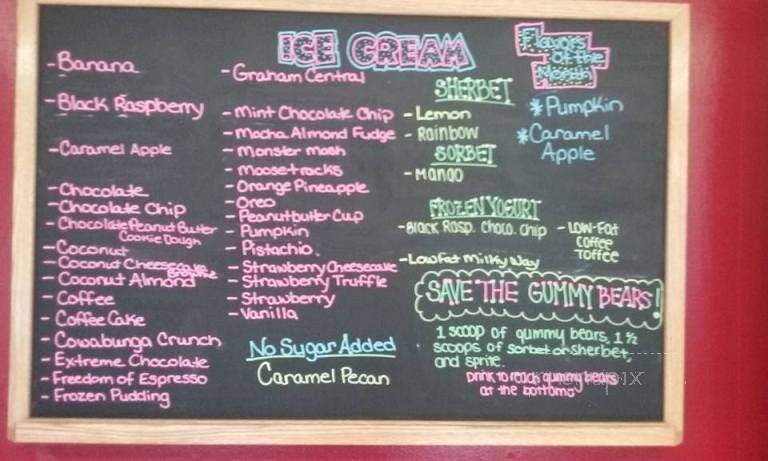 ICE CREAM
- Banana
- Black Raspberry
- Caramel Apple
- Chocolate
- Chocolate Chip
- Chocolate Peanut Butter
Cookie Dough
- Coconut
- Coconut Cheesecake
- Coconut Almond
- Coffee
- Coffee Cake
- Cowabunga Crunch
- Extreme Chocolate
- Freedom of Espresso
- Frozen Pudding
- Graham Central
- Mint Chocolate Chip
- Mocha Almond Fudge
- Monster mash
- Moosetracks
- Orange Pineapple
- Oreo
- Peanutbutter Cup
- Pumpkin
- Pistachio
- Strawberry Cheesecake
- Strawberry Truffle
- Strawberry
- Vanilla
No Sugar Added
Caramel Pecan
SHERBET
- Lemon
- Rainbow
SORBET
- Mango
FROZEN YOGURT
- Black Rasp. Choco. Chip
- Low-Fat
Coffee
Toffee
- Lowfat Milky Way
Flavors
of the
Month
* Pumpkin
* Caramel
Apple
SAVE THE GUMMY BEARS!
1 scoop of gummy bears, 1 ½
scoops of sorbet or sherbet,
and sprite.
Drink to reach gummy bears
at the bottom.